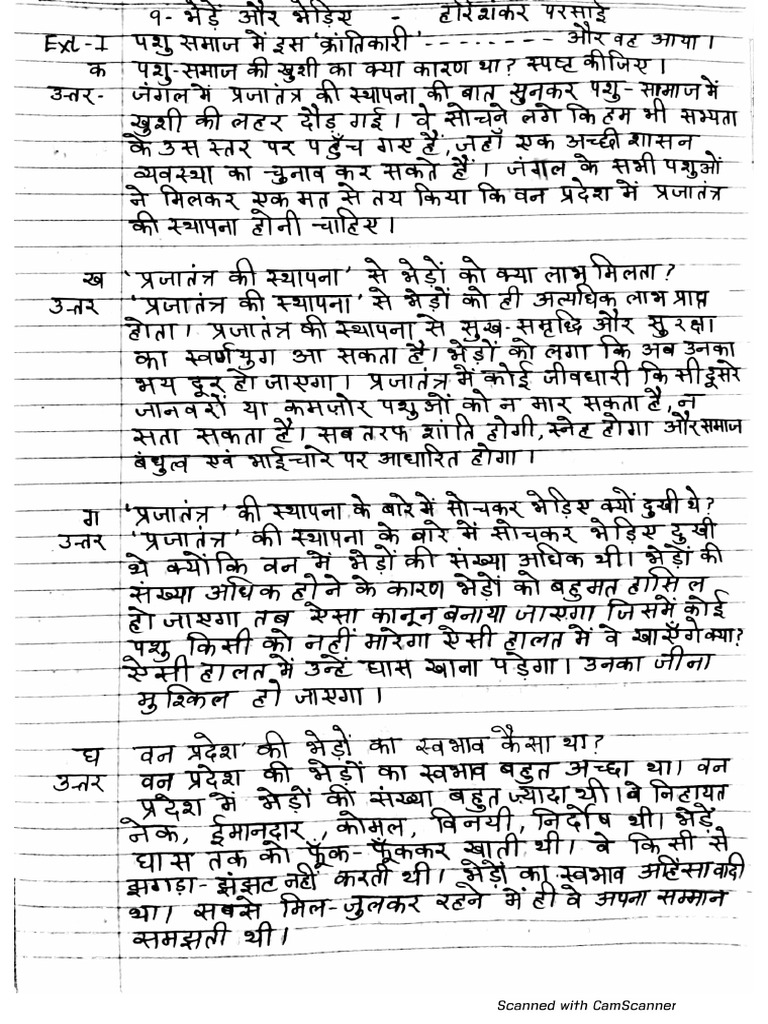 १- भेड़ें और भेड़िए - हरिशंकर परसाई
Ext-I पशु समाज में इस 'क्रांतिकारी' -------- और वह आया।
क पशु-समाज की खुशी का क्या कारण था? स्पष्ट कीजिए।
उत्तर- जंगल में प्रजातंत्र की स्थापना की बात सुनकर पशु-सामाज में
खुशी की लहर दौड़ गई। वे सोचने लगे कि हम भी सभ्यता
के उस स्तर पर पहुँच गए हैं, जहाँ एक अच्छी शासन
व्यवस्था का चुनाव कर सकते हैं। जंगल के सभी पशुओं
ने मिलकर एक मत से तय किया कि वन प्रदेश में प्रजातंत्र
की स्थापना होनी चाहिए।
ख 'प्रजातंत्र की स्थापना' से भेड़ों को क्या लाभ मिलता?
उत्तर 'प्रजातंत्र की स्थापना' से भेड़ों को ही अत्यधिक लाभ प्राप्त
होता। प्रजातंत्र की स्थापना से सुख-समृद्धि और सुरक्षा
का स्वर्णयुग आ सकता है। भेड़ों को लगा कि अब उनका
भय दूर हो जाएगा। प्रजातंत्र में कोई जीवधारी किसी दूसरे
जानवरों या कमजोर पशुओं को न मार सकता है, न
सता सकता है। सब तरफ शांति होगी, स्नेह होगा और समाज
बंधुत्व एवं भाईचारे पर आधारित होगा।
ग 'प्रजातंत्र' की स्थापना के बारे में सोचकर भेड़िए क्यों दुखी थे?
उत्तर 'प्रजातंत्र' की स्थापना के बारे में सोचकर भेड़िए दुखी
थे क्योंकि वन में भेड़ों की संख्या अधिक थी। भेड़ों की
संख्या अधिक होने के कारण भेड़ों को बहुमत हासिल
हो जाएगा तब ऐसा कानून बनाया जाएगा जिसमें कोई
पशु किसी को नहीं मारेगा ऐसी हालत में वे खाएँगे क्या?
ऐसी हालत में उन्हें घास खाना पड़ेगा। उनका जीना
मुश्किल हो जाएगा।
घ वन प्रदेश' की भेड़ों का स्वभाव कैसा था?
उत्तर वन प्रदेश की भेड़ों का स्वभाव बहुत अच्छा था। वन
प्रदेश में भेड़ों की संख्या बहुत ज्यादा थी। वे निहायत
नेक, ईमानदार, कोमल, विनयी, निर्दोष थी। भेड़ें
घास तक को फूँक-फूँककर खाती थी। वे किसी से
झगड़ा-झंझट नहीं करती थी। भेड़ों का स्वभाव अहिंसावादी
था। सबसे मिल-जुलकर रहने में ही वे अपना सम्मान
समझती थी।
Scanned with CamScanner